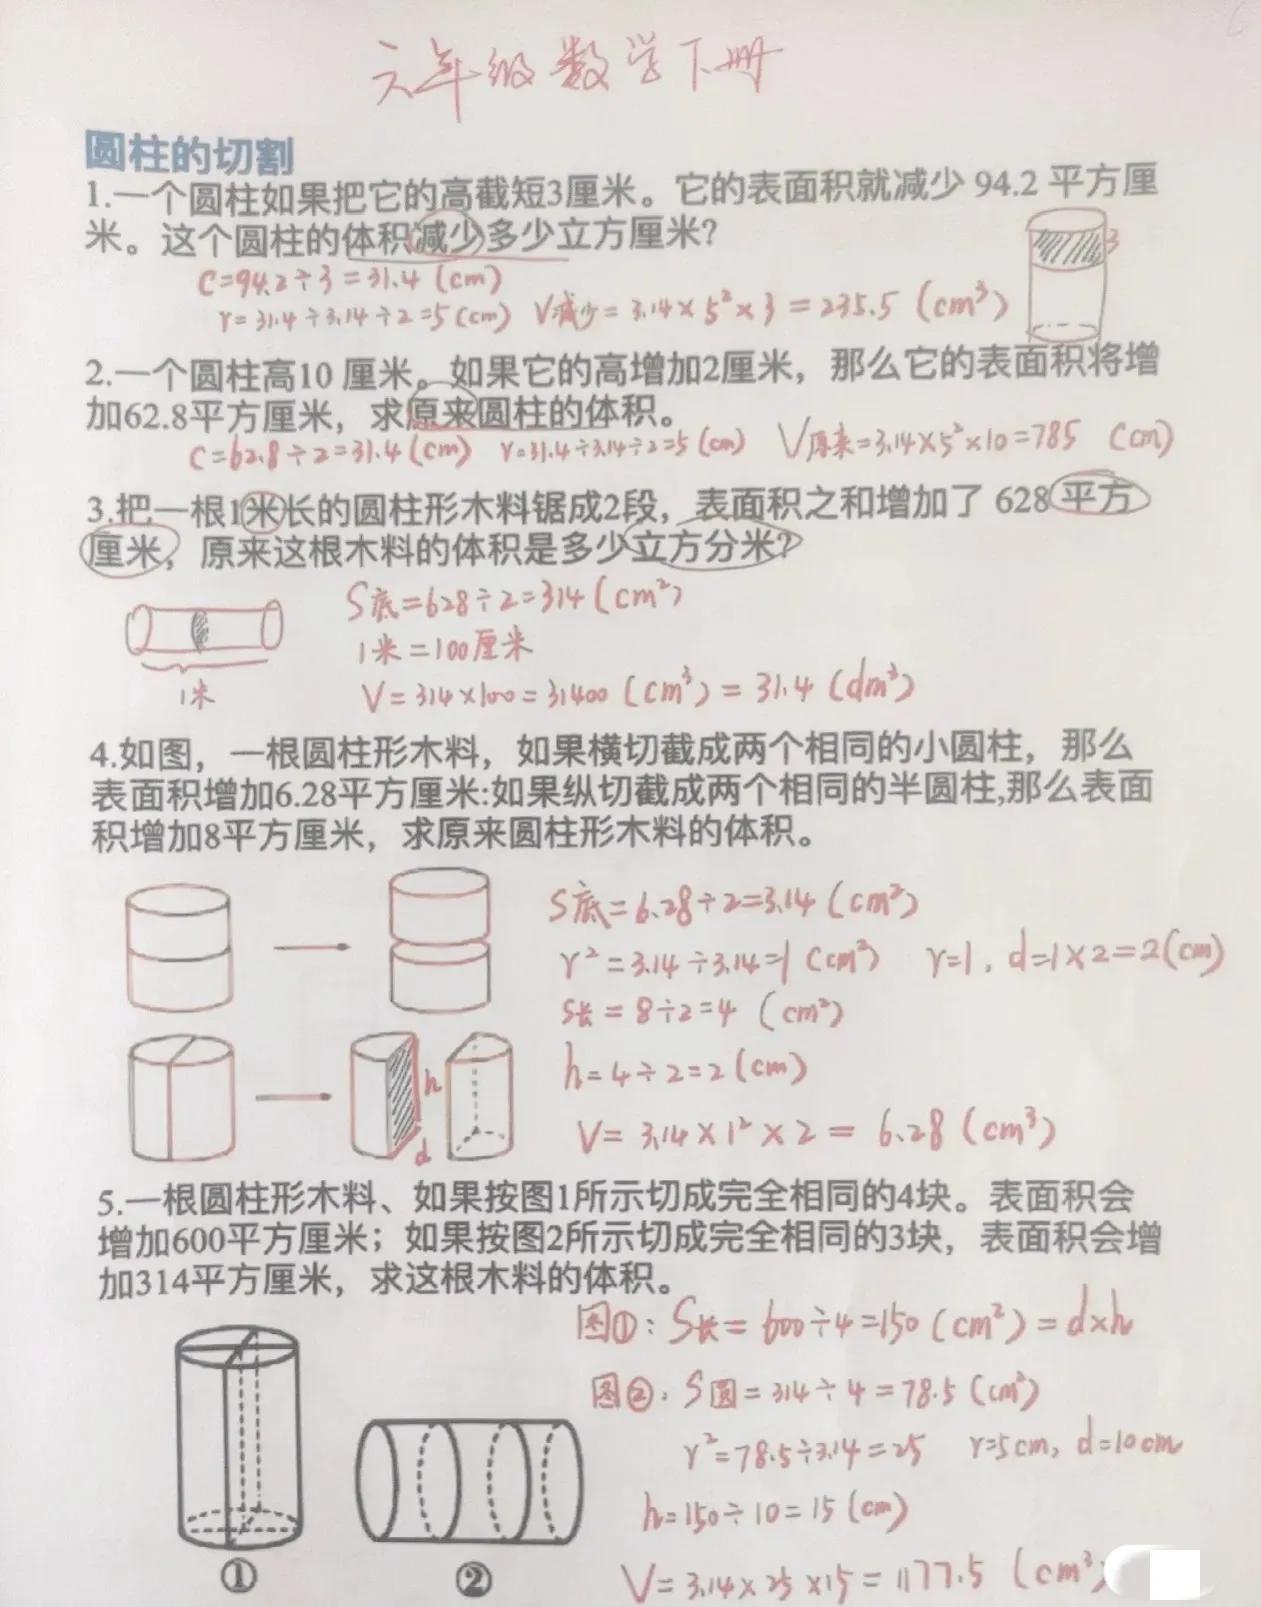 六年级数学下册
圆柱的切割
1.一个圆柱如果把它的高截短3厘米。它的表面积就减少 94.2 平方厘
米。这个圆柱的体积减少多少立方厘米?
3
C=94.2÷3=31.4 (cm)
r=31.4÷3.14÷2=5(cm) V减少=3.14×5²×3=235.5 (cm³)
2.一个圆柱高10 厘米。如果它的高增加2厘米，那么它的表面积将增
加62.8平方厘米，求原来圆柱的体积。
C=62.8÷2=31.4(cm) r=31.4÷3.14÷2=5(cm) V原来=3.14×5²×10=785 (cm)
3.把一根1米长的圆柱形木料锯成2段，表面积之和增加了 628平方
厘米，原来这根木料的体积是多少立方分米?
S底=628÷2=314(cm²)
1米=100厘米
1米
V=314×100=31400(cm³)=31.4(dm³)
4.如图，一根圆柱形木料，如果横切截成两个相同的小圆柱，那么
表面积增加6.28平方厘米:如果纵切截成两个相同的半圆柱,那么表面
积增加8平方厘米，求原来圆柱形木料的体积。
S底=6.28÷2=3.14(cm²)
r²=3.14÷3.14=1(cm²) r=1, d=1×2=2(cm)
S长=8÷2=4 (cm²)
h
h=4÷2=2(cm)
d
V=3.14×1²×2=6.28(cm³)
5.一根圆柱形木料、如果按图1所示切成完全相同的4块。表面积会
增加600平方厘米；如果按图2所示切成完全相同的3块，表面积会增
加314平方厘米，求这根木料的体积。
图①:S长=600÷4=150(cm²)=d×h
图②:S圆=314÷4=78.5(cm²)
r²=78.5÷3.14=25 r=5cm, d=10cm
h=150÷10=15(cm)
① ②
V=3.14×25×15=1177.5 (cm³